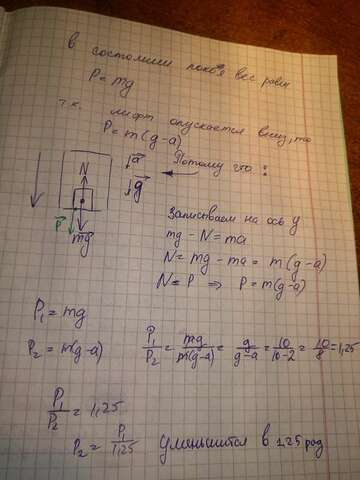 В состоянии покоя вес равен
P = mg
т.к. лифт опускается вниз, то
P = m(g-a)
a
N
g
Потому что:
P
mg
Записываем на ось y
mg - N = ma
N = mg - ma = m(g-a)
N = P ⇒ P = m(g-a)
P₁ = mg
P₂ = m(g-a)
P₁/P₂ = mg/m(g-a) = g/g-a = 10/10-2 = 10/8 = 1,25
P₁/P₂ = 1,25
P₂ = P₁/1,25 уменьшится в 1,25 раз